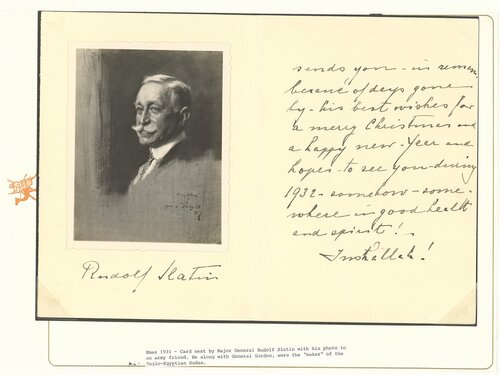 Rudolf Slatin
sends you - in remem-
berance of days gone
by - his best wishes for
a merry Christmas and
a happy new-Year and
hopes to see you during
1932 - somehow - some-
where in good health
and spirit!
Inshallah!
Xmas 1931 - Card sent by Major General Rudolf Slatin with his photo to
an army friend. He along with General Gordon, were the "maker" of the
Anglo-Egyptian Sudan.